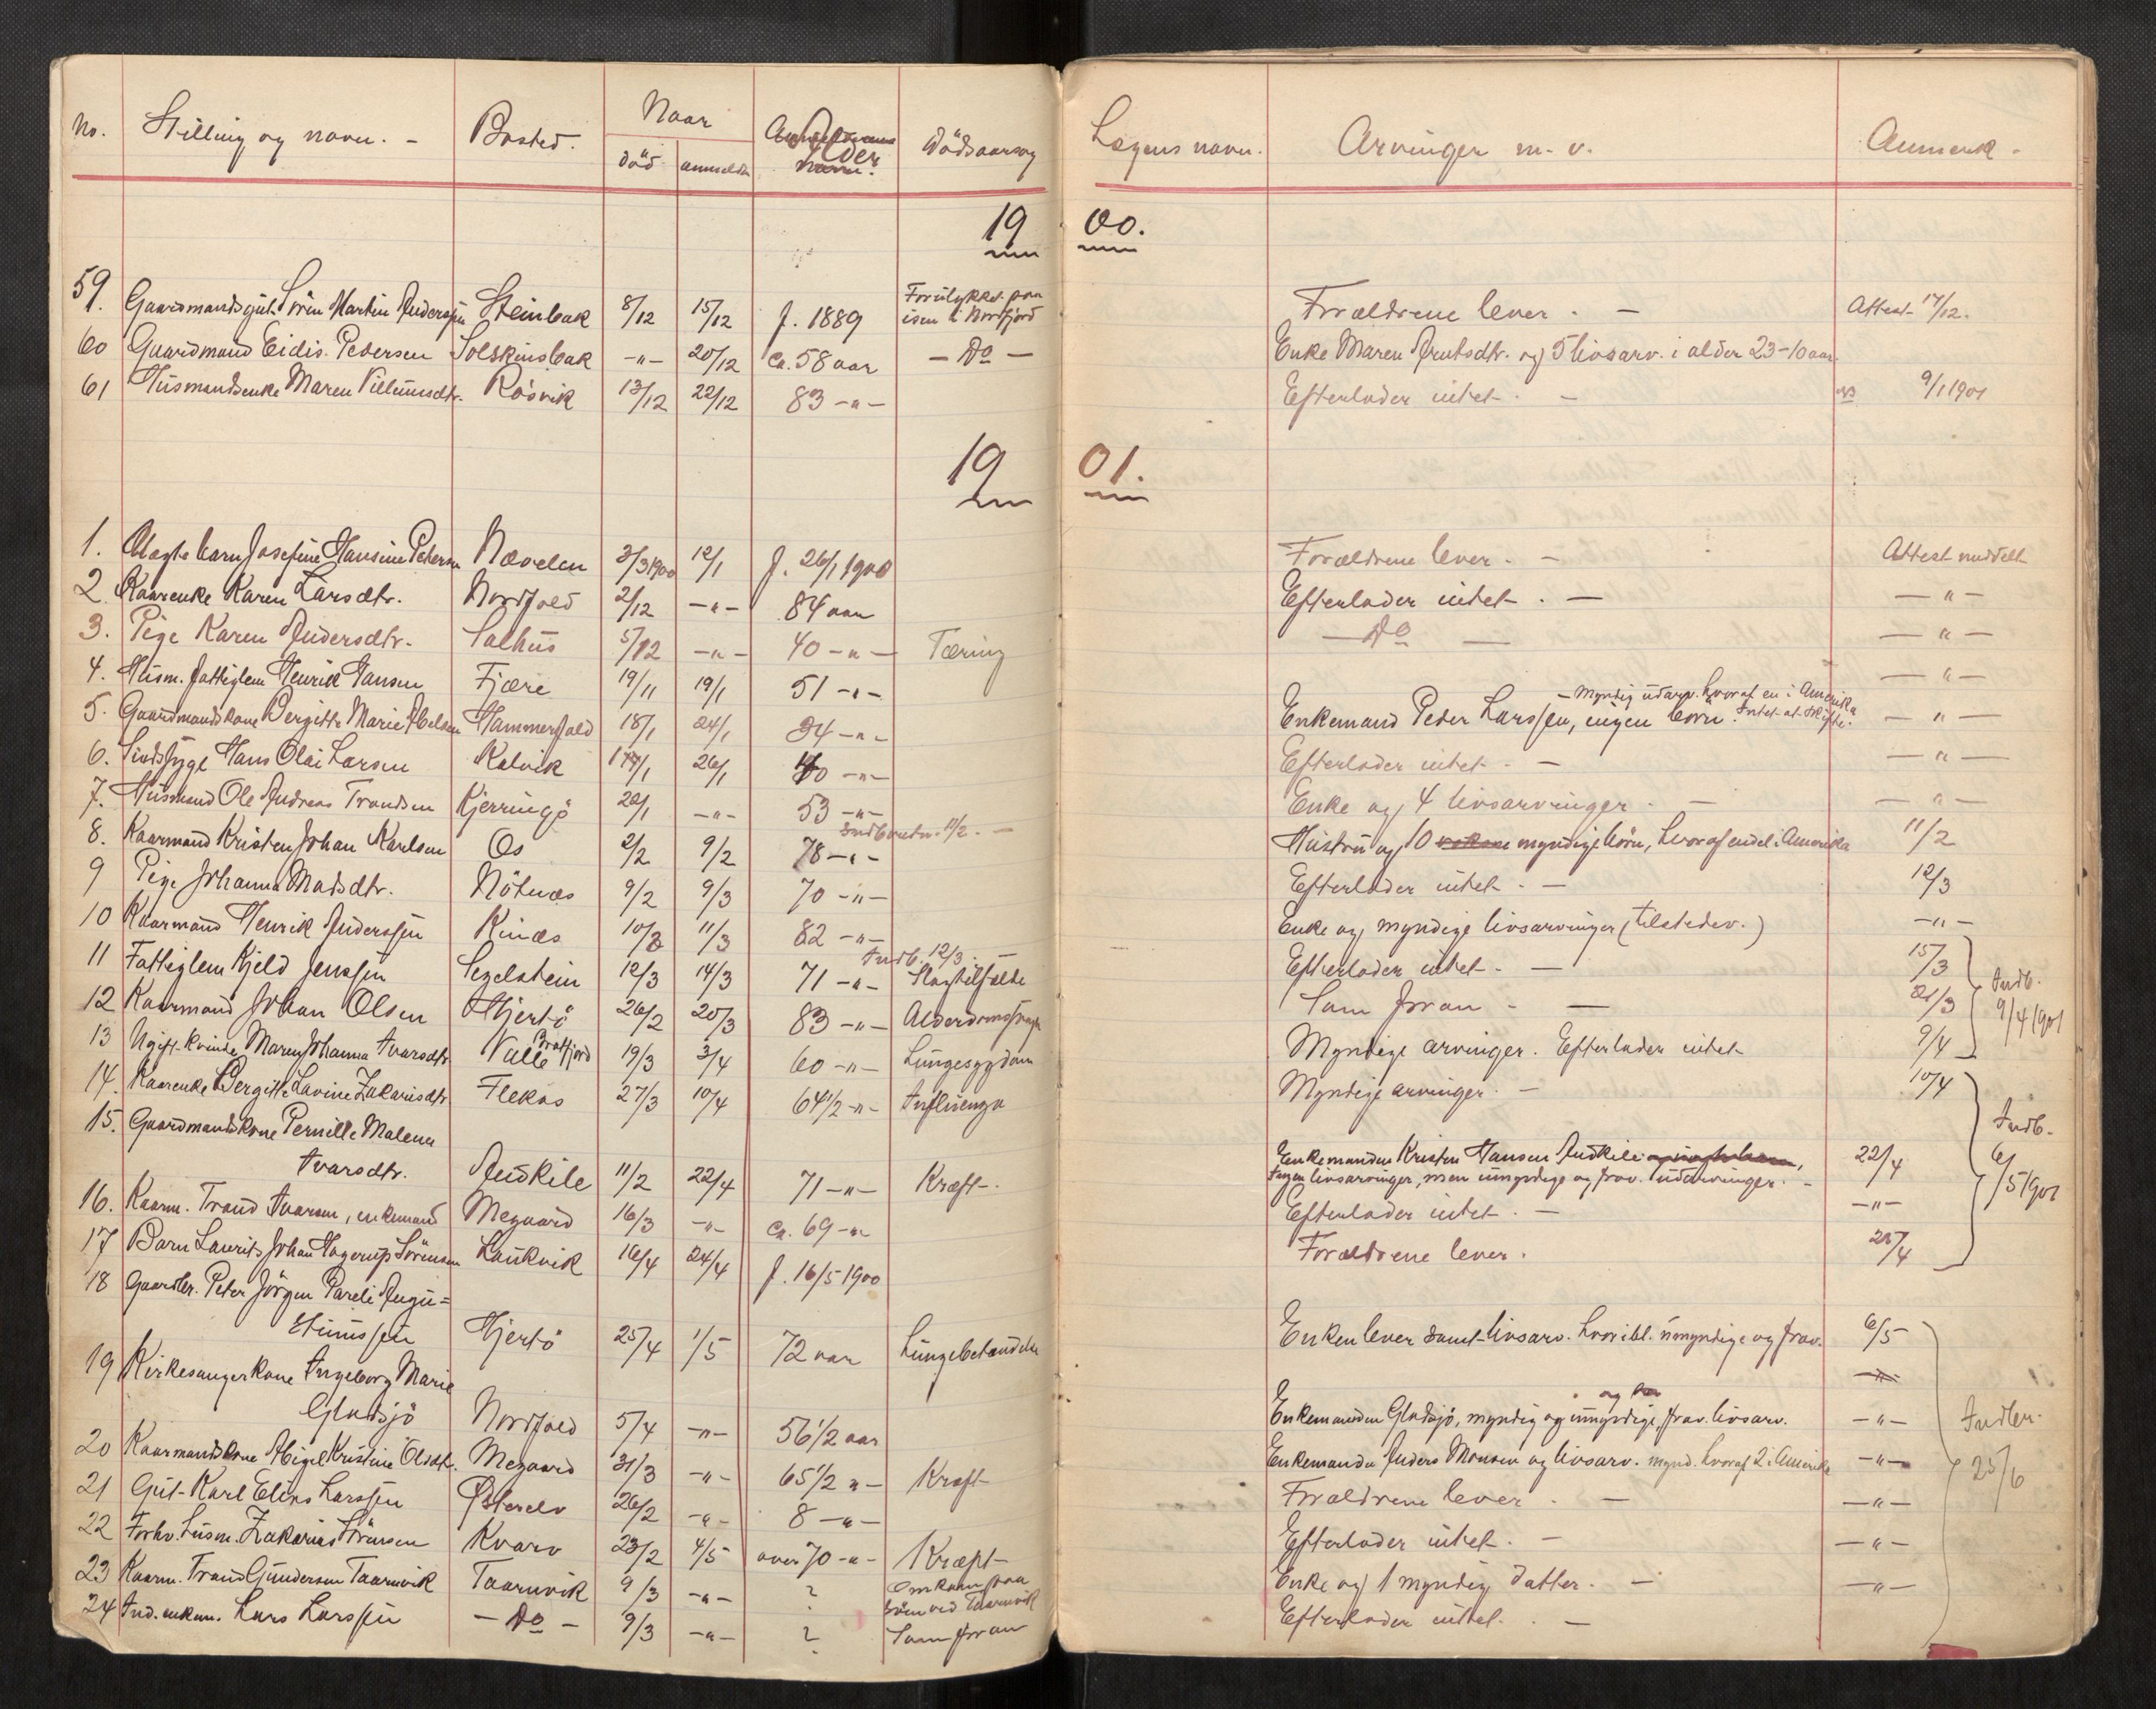 No. Stilling og navn. - Bosted. Naar Alder Dödsaarsag Lægens navn. Arvinger m. v. Anmerk.
död anmeldt
19 00.
59. Gaardmandsgut Sörin Martin Anderssen Steinbak 8/12 15/12 f. 1889 Forulykket paa isen i Nordfjord Forældrene lever. - Attest 17/12.
60 Gaardmand Eidis Pedersen Solskinsbak -"- 20/12 ca. 58 aar - Do - Enke Maren Arntsdtr. og 5 livsarv. i alder 23-10 aar.
61 Husmandsenke Maren Villumsdtr. Rösvik 13/12 22/12 83 -"- Efterlader intet. - 9/1 1901
19 01.
1. Uægte barn Josefine Hansine Petersen Nævelen 3/3 1900 12/1 f. 26/1 1900 Forældrene lever. - Attest meddelt
2 Kaarenke Karen Larsdtr. Nordfold 2/12 -"- 84 aar Efterlader intet. - -"-
3. Pige Karen Andersdtr. Salhus 5/12 -"- 40 -"- Tæring - Do - -"-
4. Husm. fattiglem Henrik Hansen Fjære 19/11 19/1 51 -"- -"-
- Myndig udarv. hvoraf en i Amerika
5. Gaardmandskone Bergitte Marie Abelsen Hammerfald 18/1 24/1 34 -"- Enkemand Peder Larssen, ingen börn. Intet at skifte. -"-
6. Sindssyge Hans Olai Larsen Kalvik 14/1 26/1 40 -"- Efterlader intet. - -"-
7. Husmand Ole Andreas Trondsen Kjerringö 20/1 -"- 53 -"- Enke og 4 livsarvinger. - -"-
Indberetn. 11/2. -
8. Kaarmand Kristen Johan Karlsen Os 2/2 9/2 78 -"- Hustru og 10 myndige börn, hvoraf endel i Amerika 11/2
9 Pige Johanna Madsdtr. Nötnæs 9/2 9/3 70 -"- Efterlader intet. - 12/3
10 Kaarmand Henrik Anderssen Kinæs 10/2 11/3 82 -"- Enke og myndige livsarvinger (tilstedev.) -"-
Indb. 12/3. -
11 Fattiglem Kjeld Jenssen Segelstein 12/3 14/3 71 -"- Slagtilfælde Efterlader intet. - 15/3
12 Kaarmand Johan Olsen Hjertö 26/2 20/3 83 -"- Alderdomssvagh. Som foran - - 21/3 Indb. 9/4 1901
13 Ugift kvinde Maren Johanna Ivarsdtr. Valle Brotfjord 19/3 3/4 60 -"- Lungesygdom Myndige arvinger. Efterlader intet 9/4
14. Kaarenke Bergitte Lavine Zakarisdtr. Flekøs 27/3 10/4 64 1/2 -"- Influenza Myndige arvinger. - 10/4
15. Gaardmandskone Pernille Malena
Ivarsdtr. Andkile 11/2 22/4 71 -"- Kræft. Enkemanden Kristen Hansen Andkile 22/4 Indb. 6/5 1901
Ingen livsarvinger, men umyndige og frav. udarvinger. -
16. Kaarm. Trond Ivarsen, enkemand Megaard 16/3 -"- ca. 69 -"- Efterlader intet. - -"-
17 Barn Laurits Johan Hagerup Sörensen Laukvik 16/4 24/4 f. 16/5 1900 Forældrene lever. 25/4
18 Gaardbr. Peter Jörgen Pareli Augu=
stinussen Hjertö 25/4 1/5 72 aar Lungebetændelse Enken lever samt livsarv. hvoribl. umyndige og frav. 6/5
19 Kirkesangerkone Ingeborg Marie
Gladsjö Nordfold 5/4 -"- 56 1/2 aar Enkemanden Gladsjö, myndig og umyndige, frav. livsarv. -"- Indber. 25/6
20 Kaarmandskone Abigel Kristine Olsdtr. Megaard 31/3 -"- 65 1/2 "- Kræft Enkemanden Anders Monsen og livsarv. mynd. hvoraf 2 i Amerika -"-
21 Gut Karl Elias Larssen Østerelv 26/2 -"- 8 -"- Forældrene lever. - -"-
22 Forhv. husm. Zakarias Sörensen Kvarv 23/2 4/5 over 70 -"- Kræft Efterlader intet. - -"-
23 Kaarm. Trond Gundersen Taarnvik Taarnvik 9/3 -"- ? Omkom paa söen ved Taarnvik Enke og 1 myndig datter. - -"-
24 Ind. enkem. Lars Larssen - Do - 9/3 -"- ? Som foran Efterlader intet. -